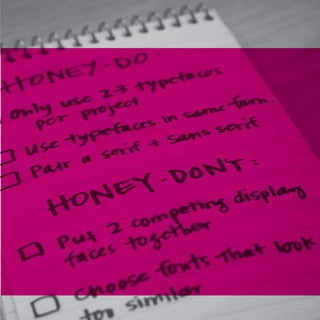 HONEY-DO:
Only use 2-3 typefaces
per project
Use typefaces in same fam.
Pair a serif + sans serif
HONEY-DONT:
Put 2 competing display
faces together
Choose fonts that look
too similar